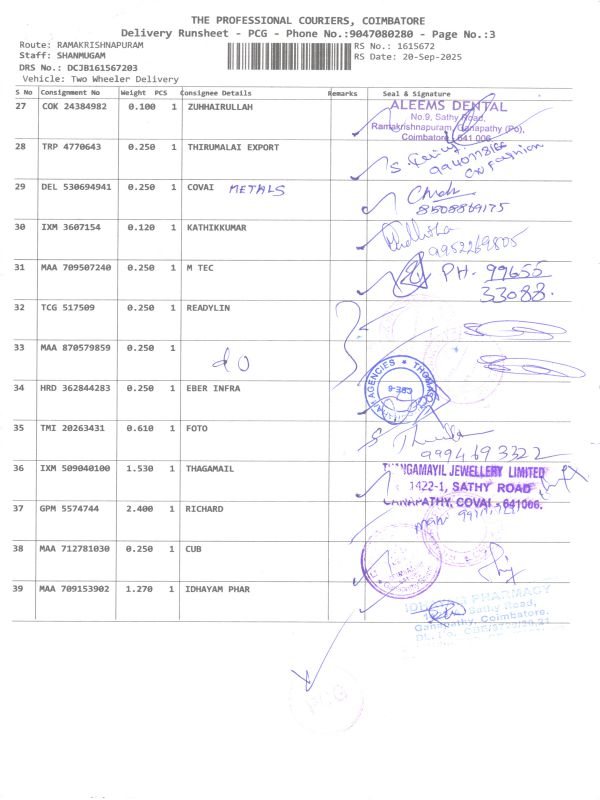 THE PROFESSIONAL COURIERS, COIMBATORE
Delivery Runsheet - PCG - Phone No.:9047080280 - Page No.:3
Route: RAMAKRISHNAPURAM RS No.: 1615672
Staff: SHANMUGAM RS Date: 20-Sep-2025
DRS No.: DCJB161567203
Vehicle: Two Wheeler Delivery
S No Consignment No Weight PCS Consignee Details Remarks Seal & Signature
27 COK 24384982 0.100 1 ZUHHAIRULLAH
ALEEMS DENTAL
No.9, Sathy Road,
Ramakrishnapuram, Ganapathy (Po),
Coimbatore 641 006
28 TRP 4770643 0.250 1 THIRUMALAI EXPORT
29 DEL 530694941 0.250 1 COVAI METALS
8508869175
30 IXM 3607154 0.120 1 KATHIKKUMAR
9952269805
31 MAA 709507240 0.250 1 M TEC
PH. 99655
33088.
32 TCG 517509 0.250 1 READYLIN
33 MAA 870579859 0.250 1
do
34 HRD 362844283 0.250 1 EBER INFRA
AGENCIES ★ THOMAS
CBE-6
35 TMI 20263431 0.610 1 FOTO
9994693322
36 IXM 509040100 1.530 1 THAGAMAIL
THANGAMAYIL JEWELLERY LIMITED
1422-1, SATHY ROAD
GANAPATHY, COVAI - 641006.
37 GPM 5574744 2.400 1 RICHARD
38 MAA 712781030 0.250 1 CUB
39 MAA 709153902 1.270 1 IDHAYAM PHAR
PHARMACY
Sathy Road,
Ganapathy, Coimbatore.
PCG